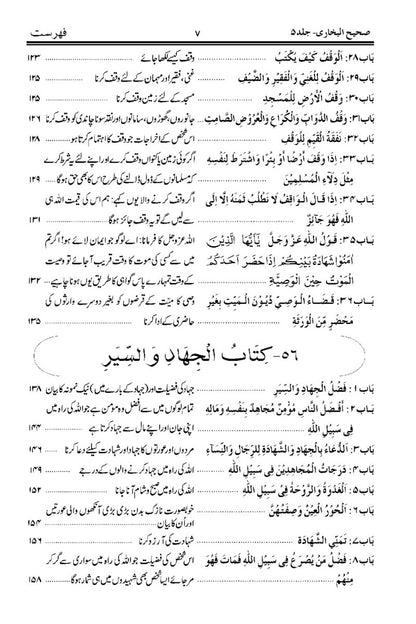 صحیح البخاری - جلد ۵ ۷ فهرست
بَاب۲۸: اَلْوَقْفُ كَيْفَ يُكْتَبُ وقف کیسے لکھا جائے ۱۲۳
بَاب۲۹: اَلْوَقْفُ لِلْغَنِيِّ وَالْفَقِيْرِ وَالضَّيْفِ غنی، فقیر اور مہمان کے لئے وقف کرنا ۱۲۵
بَاب۳۰: وَقْفُ الْأَرْضِ لِلْمَسْجِدِ مسجد کے لئے زمین وقف کرنا ۱۲۵
بَاب۳۱: وَقْفُ الدَّوَابِّ وَالْكُرَاعِ وَالْعُرُوْضِ الصَّامِتِ جانوروں، گھوڑوں، سامانوں اور نقد سونا چاندی کو وقف کرنا ۱۲۶
بَاب۳۲: نَفَقَةُ الْقَيِّمِ لِلْوَقْفِ اس شخص کے اخراجات جو وقف کا اہتمام کرتا ہو ۱۲۸
بَاب۳۳: إِذَا وَقَفَ أَرْضًا أَوْ بِئْرًا وَاشْتَرَطَ لِنَفْسِهِ اگر کوئی زمین یا کنواں وقف کرے اور اپنے لئے یہ شرط کرے
مِثْلَ دِلَاءِ الْمُسْلِمِيْنَ کہ مسلمانوں کے ڈول ڈالنے کی طرح اس کا بھی حق ہوگا ۱۲۹
بَاب۳۴: إِذَا قَالَ الْوَاقِفُ لَا نَطْلُبُ ثَمَنَهُ إِلَّا إِلَى اگر وقف کرنے والا یوں کہے: ہم اس کی قیمت اللہ ہی
اللّٰهِ فَهُوَ جَائِزٌ سے لیں گے تو یہ وقف جائز ہوگا ۱۳۱
بَاب۳۵: قَوْلُ اللّٰهِ عَزَّ وَجَلَّ يَأَيُّهَا الَّذِيْنَ اللہ عزوجل کا فرمانا: اے لوگو جو ایمان لائے ہو! اگر تم
اٰمَنُوْا شَهَادَةُ بَيْنِكُمْ إِذَا حَضَرَ أَحَدَكُمُ میں سے کسی کی موت کا وقت قریب آ جائے تو وصیت
الْمَوْتُ حِيْنَ الْوَصِيَّةِ کے وقت تمہارے پاس گواہی کا طریق یوں ہونا چاہیے ۱۳۲
بَاب۳۶: قَضَاءُ الْوَصِيِّ دُيُوْنَ الْمَيِّتِ بِغَيْرِ وصی کا میت کے قرضوں کو بغیر دوسرے وارثوں کی
مَحْضَرٍ مِّنَ الْوَرَثَةِ حاضری کے ادا کرنا ۱۳۵
۵۶- كِتَابُ الْجِهَادِ وَالسِّيَرِ
بَاب ۱: فَضْلُ الْجِهَادِ وَالسِّيَرِ جہاد کی فضیلت اور (جہاد کے بارے میں) نیک نمونہ کا بیان ۱۳۸
بَاب ۲: أَفْضَلُ النَّاسِ مُؤْمِنٌ مُجَاهِدٌ بِنَفْسِهِ وَمَالِهِ تمام لوگوں میں سے افضل وہ مومن ہے جو اللہ کی راہ میں
فِي سَبِيْلِ اللّٰهِ اپنی جان اور اپنے مال سے جہاد کرتا ہے ۱۴۴
بَاب۳: اَلدُّعَاءُ بِالْجِهَادِ وَالشَّهَادَةِ لِلرِّجَالِ وَالنِّسَآءِ مردوں اور عورتوں کا جہاد اور شہادت کیلئے دعا کرنا ۱۴۶
بَاب۴: دَرَجَاتُ الْمُجَاهِدِيْنَ فِي سَبِيْلِ اللّٰهِ اللہ کی راہ میں جہاد کرنے والوں کے درجے ۱۴۹
بَاب۵: اَلْغَدْوَةُ وَالرَّوْحَةُ فِي سَبِيْلِ اللّٰهِ اللہ کی راہ میں صبح و شام آنا جانا ۱۵۲
بَاب۶: اَلْحُوْرُ الْعِيْنُ وَصِفَتُهُنَّ خوبصورت نازک بدن بڑی بڑی آنکھوں والی عورتیں
اور اُن کا بیان ۱۵۴
بَاب۷: تَمَنِّي الشَّهَادَةِ شہادت کی آرزو کرنا ۱۵۶
بَاب۸: فَضْلُ مَنْ يُصْرَعُ فِي سَبِيْلِ اللّٰهِ فَمَاتَ فَهُوَ اس شخص کی فضیلت جو اللہ کی راہ میں سواری سے گر کر
مِنْهُمْ مر جائے ایسا شخص بھی شہیدوں میں ہی شمار ہوگا ۱۵۸